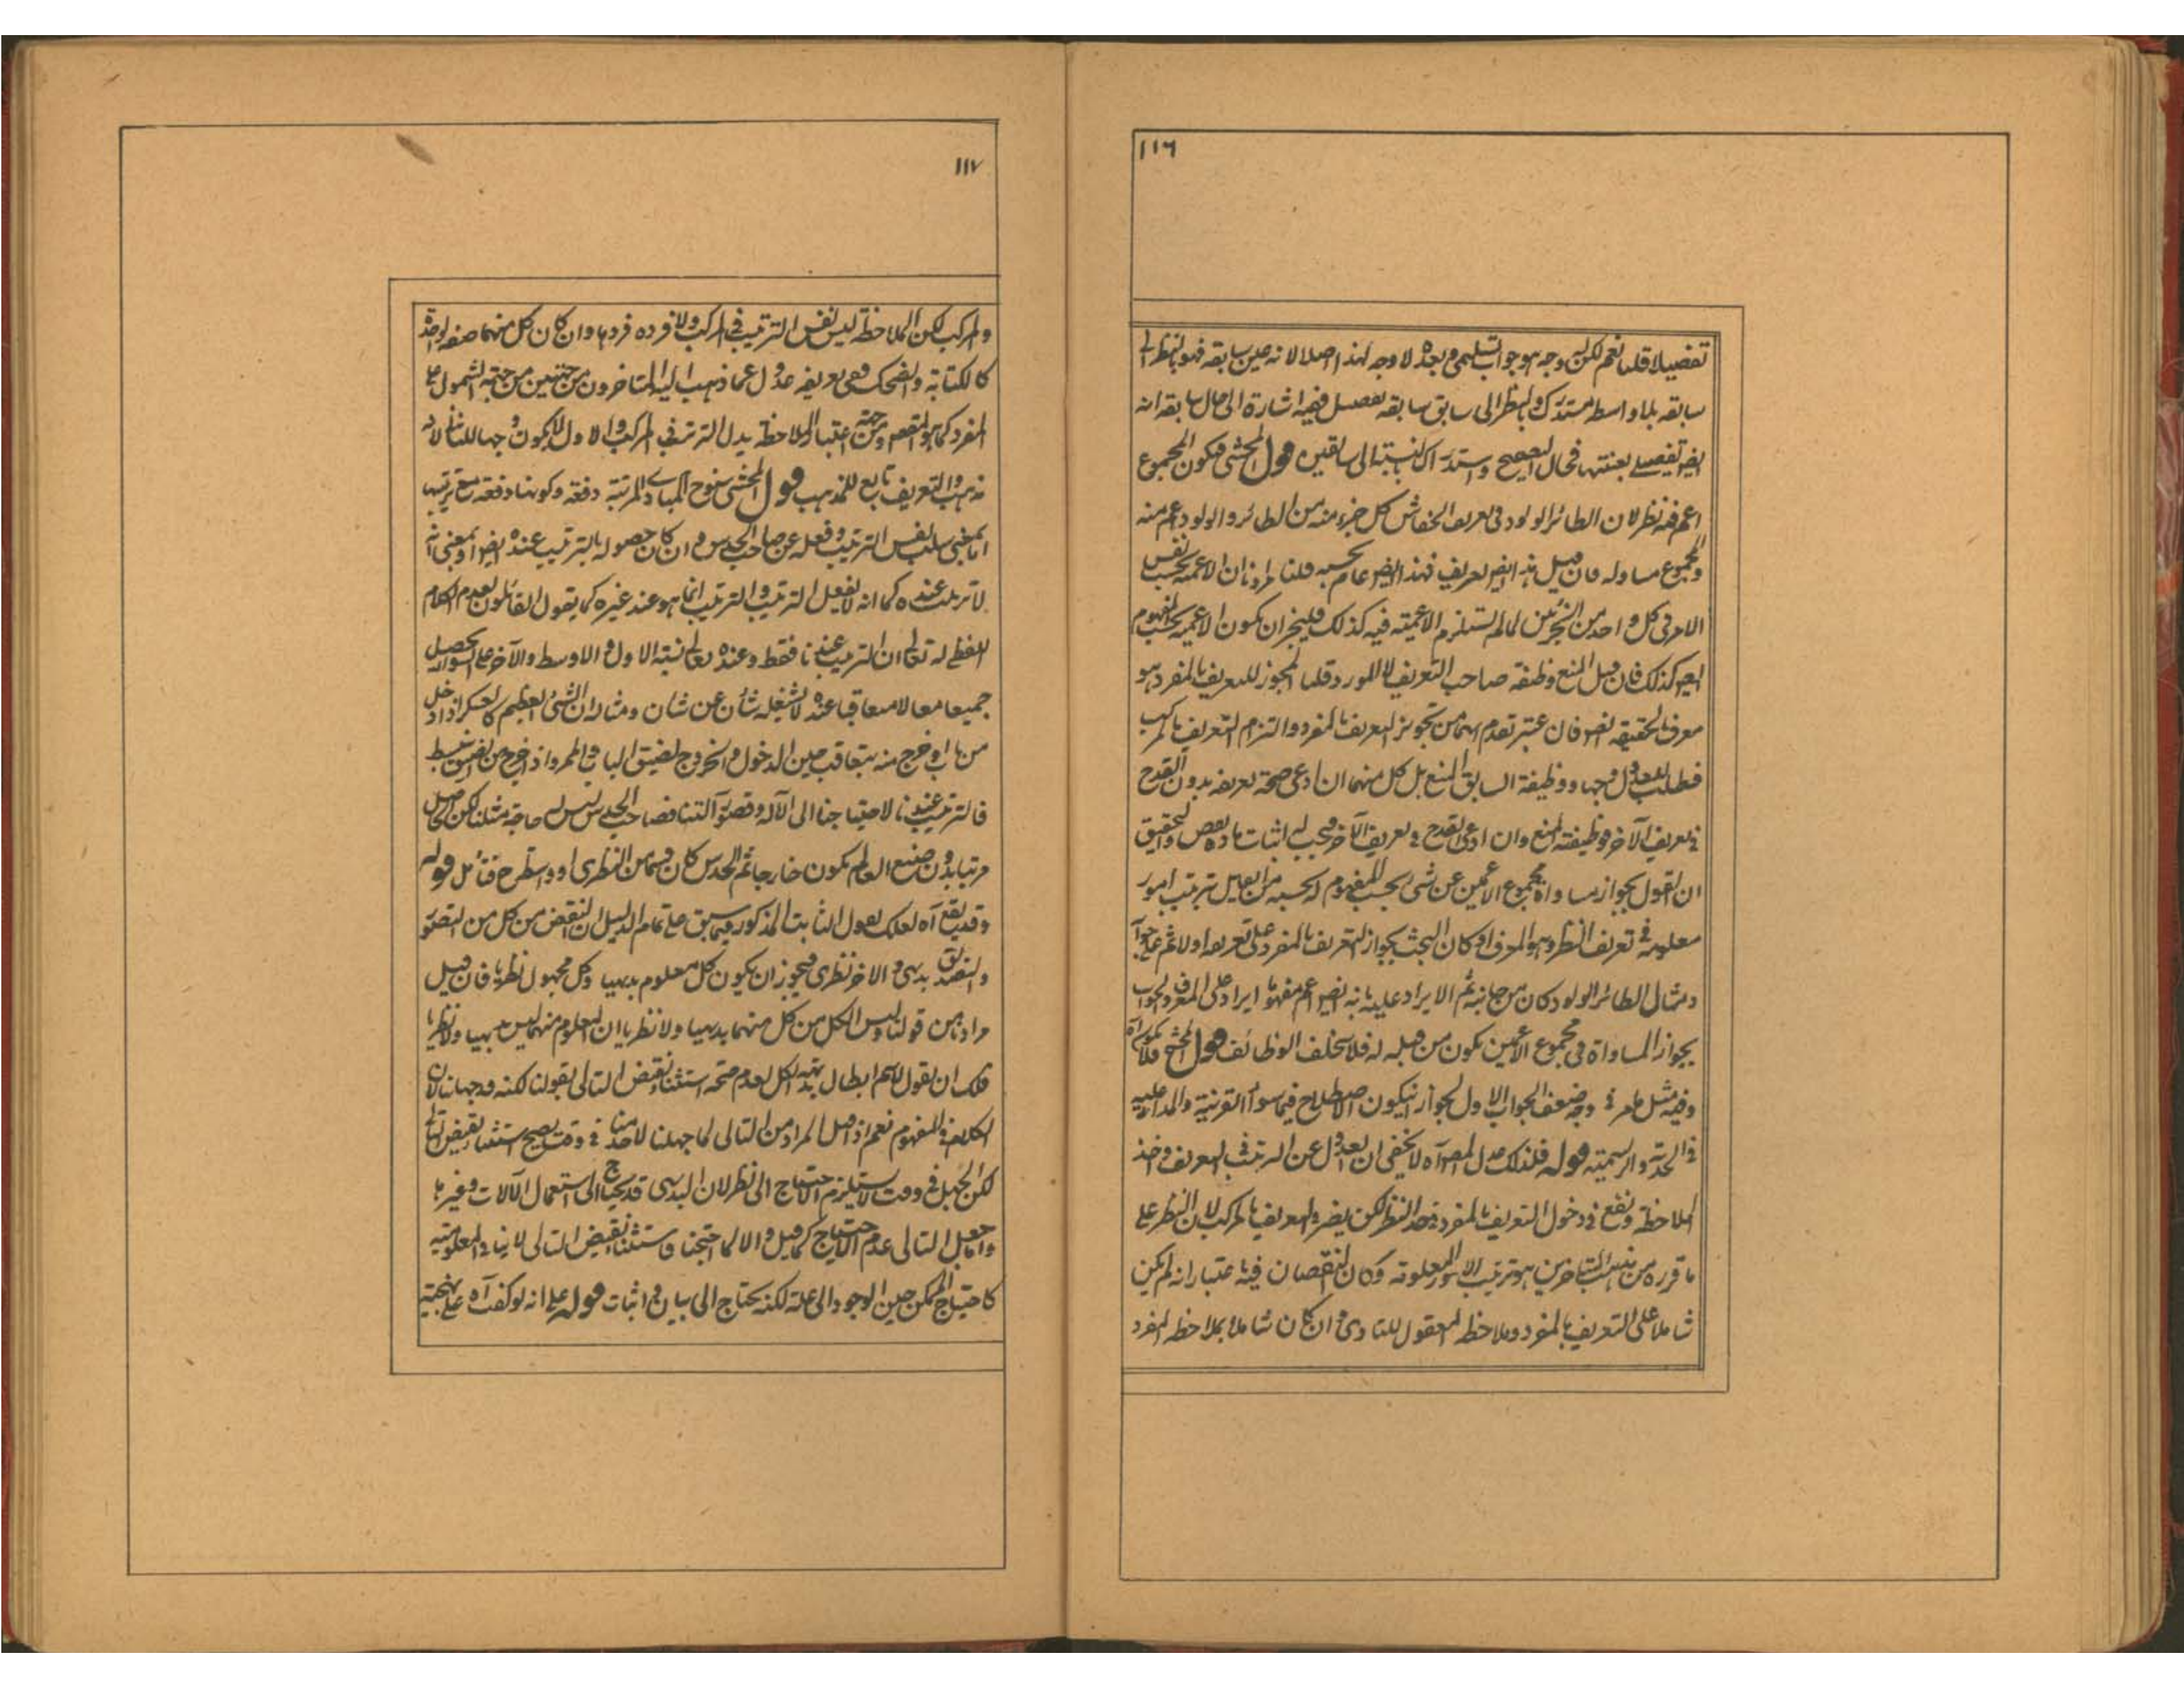 ١١٦
تفصيلا قلنا نعم لكن له وجه هو جواب تسليمي وبعده لا وجه لهذا اصلا لانه عين سابقه فهو بالنظر الى
سابقه بلا واسطه مستدرك وبالنظر الى سابق سابقه تفصيل ففيه اشارة الى حال سابقه انه
ايضا تفصيل فحال الصحيح واستدراك بالنسبة الى سابقين قول المحشي فيكون المجموع
اعم فيه نظر لان الطائر الولود في تعريف الخفاش كل جزء منه من الطائر والولود اعم منه
والمجموع مساو له فان قيل هذا ايضا تعريف فهذا ايضا عام بحسبه قلنا مرادنا ان الاعمية بحسب نفس
الامر في كل واحد من الجزئين لما لم تستلزم الاعمية فيه كذلك فليجز ان يكون الاعمية بحسب المفهوم
ايضا كذلك فان قيل المنع وظيفة صاحب التعريف لا المورد قلنا المجوز للتعريف بالمفرد هو
معرف بالحقيقة ايضا فان اعتبر تقدم ايهما من تجويز التعريف بالمفرد والتزام التعريف بالمركب
فطلب للعدول وجها ووظيفة السابق المنع بل كل منهما ان ادعى صحة تعريفه بدون القدح
في تعريف الآخر فوظيفته المنع وان ادعى القدح في تعريف الآخر فيجب له اثبات مادة بعض والتحقيق
ان القول بجواز مساواة مجموع الاعمين عن شئ بحسب المفهوم له بحسبه من القايل ترتيب امور
معلومة في تعريف النظر وهو المعرف او كان البحث بجواز التعريف بالمفرد على تعريفه اولا ثم
ومثال الطائر الولود كان من جانبه ثم الايراد عليه بانه ايضا اعم مفهوما ايراد على المعرف والجواب
بجواز المساواة في مجموع الاعمين يكون من قبله له فلا تخلف الوظائف قول المحشي فلا يكون آه
وفيه مثل ما مر في وجه ضعف الجواب الاول لجواز ان يكون الاصطلاح فيما سوى القرينة والمدار عليه
في الحدية والرسمية قوله فلذلك عدل المصر آه لا يخفى ان العدول عن الترتيب في التعريف واخذ
الملاحظة وقع في دخول التعريف بالمفرد في حد النظر لكن يضر في التعريف بالمركب لان النظر على
ما قرره من مذهب المتاخرين هو ترتيب الامور المعلومة وكان النقصان فيه اعتبار انه لم يكن
شاملا على التعريف بالمفرد وملاحظة المعقول للتادي وان كان شاملا بملاحظة المفرد
١١٧
والمركب لكن الملاحظة ليس نفس الترتيب في المركب ولا فرده فردها وان كان كل منهما صفة واحدة
كالكتابة والضحك ففي تعريفه عدول عما ذهب اليه المتاخرون من جهتين من جهة الشمول على
المفرد كما هو المقصود ومن جهة اعتبار الملاحظة بدل الترتيب في المركب والاول لا يكون وجها للثاني لانه
مذهب والتعريف تابع للمذهب قول المحشي سنوح المبادي المرتبة دفعة وكونها دفعة مع ترتيبها
اما بمعنى سلب نفس الترتيب وفعله عن صاحب الحدس وان كان حصوله بالترتيب عنده ايضا او بمعنى انه
لا ترتيب عنده كما انه لا يفعل الترتيب والترتيب انما هو عند غيره كما يقول القائلون بعدم الكلام
اللفظي له تعالى ان الترتيب عندنا فقط وعنده تعالى نسبة الاول والاوسط والآخر على السواء تحصيل
جميعا معا لا متعاقبا عنده لا يشغله شان عن شان ومثاله ان الشئ العظيم كالعسكر اذا دخل
من باب او خرج منه يتعاقب حين الدخول والخروج لضيق الباب والممر واذا خرج من المضيق ينبسط
فالترتيب عندنا لاحتياجنا الى الآلة وقصور آلتنا فصاحب الحدس ليس له حاجة مثلنا لكن الحاصل
مرتبا بدون صنع العالم يكون خارجا ثم الحدس كان قسما من النظري او واسطة طرح فتامل قوله
وقد يقع آه لعلك تقول الثابت المذكور فيما سبق على تمام الدليل ان النقض من كل من التصور
والتصديق بديهي والاخر نظري فيجوز ان يكون كل معلوم بديهيا وكل مجهول نظريا فان قيل
مرادنا من قولنا وليس الكل من كل منهما بديهيا ولا نظريا ان المعلوم منهما ليس بديهيا ولا نظريا
قلت ان نقول لا يتم ابطال بديهة الكل لعدم صحة استثناء نقيض التالي بقولنا لكنه قد جهلنا لان
الكلام في المفهوم نعم اذا حمل المراد من التالي لما جهلنا لاحد منا في وقت يصح استثناء نقيض التالي
لكن الجهل في وقت لا يستلزم الاحتياج الى نظر لان البديهي قد يحتاج الى استعمال الآلات وغيرها
واما جعل التالي عدم الاحتياج كما قيل والا لما احتجنا فاستثناء نقيض التالي لا ينافي المعلومية
كاحتياج الممكن حين الوجود الى علة لكنه يحتاج الى بيان واثبات قوله على انه لو كفت آه على بهجته